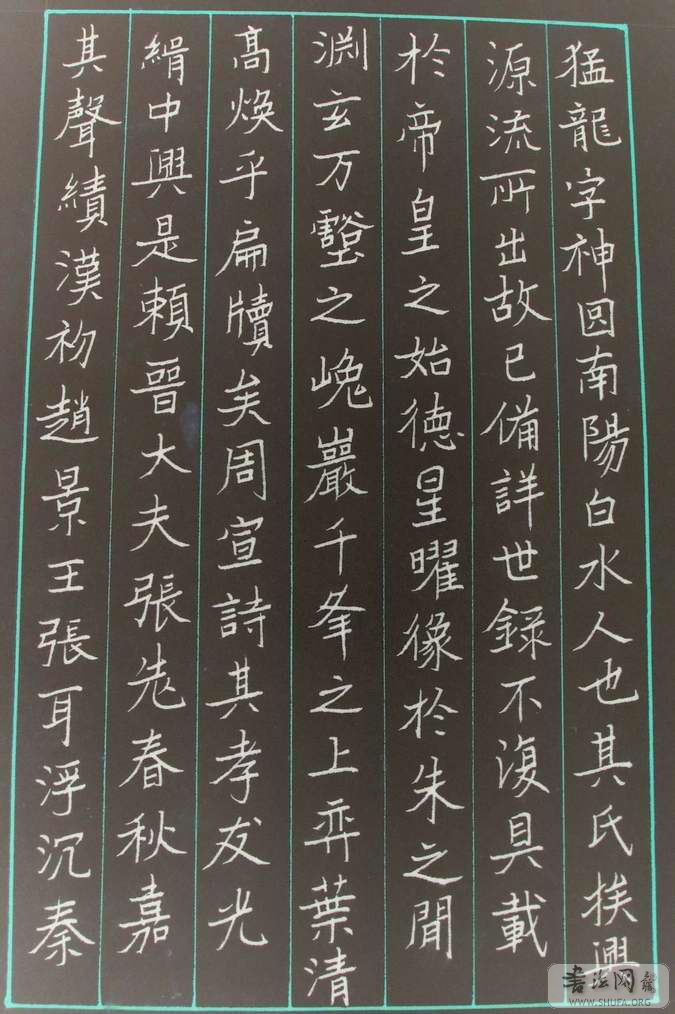 猛龍字神囧南陽白水人也其氏族興
源流所出故已備詳世錄不復具載
於帝皇之始德星曜像於朱之間
渊玄万壑之峗巖千峯之上弈葉清
高焕乎扁牘矣周宣詩其孝友光
緝中興是賴晉大夫張老春秋嘉
其聲績漢初趙景王張耳浮沉秦
書法网
WWW.SHUFA.ORG